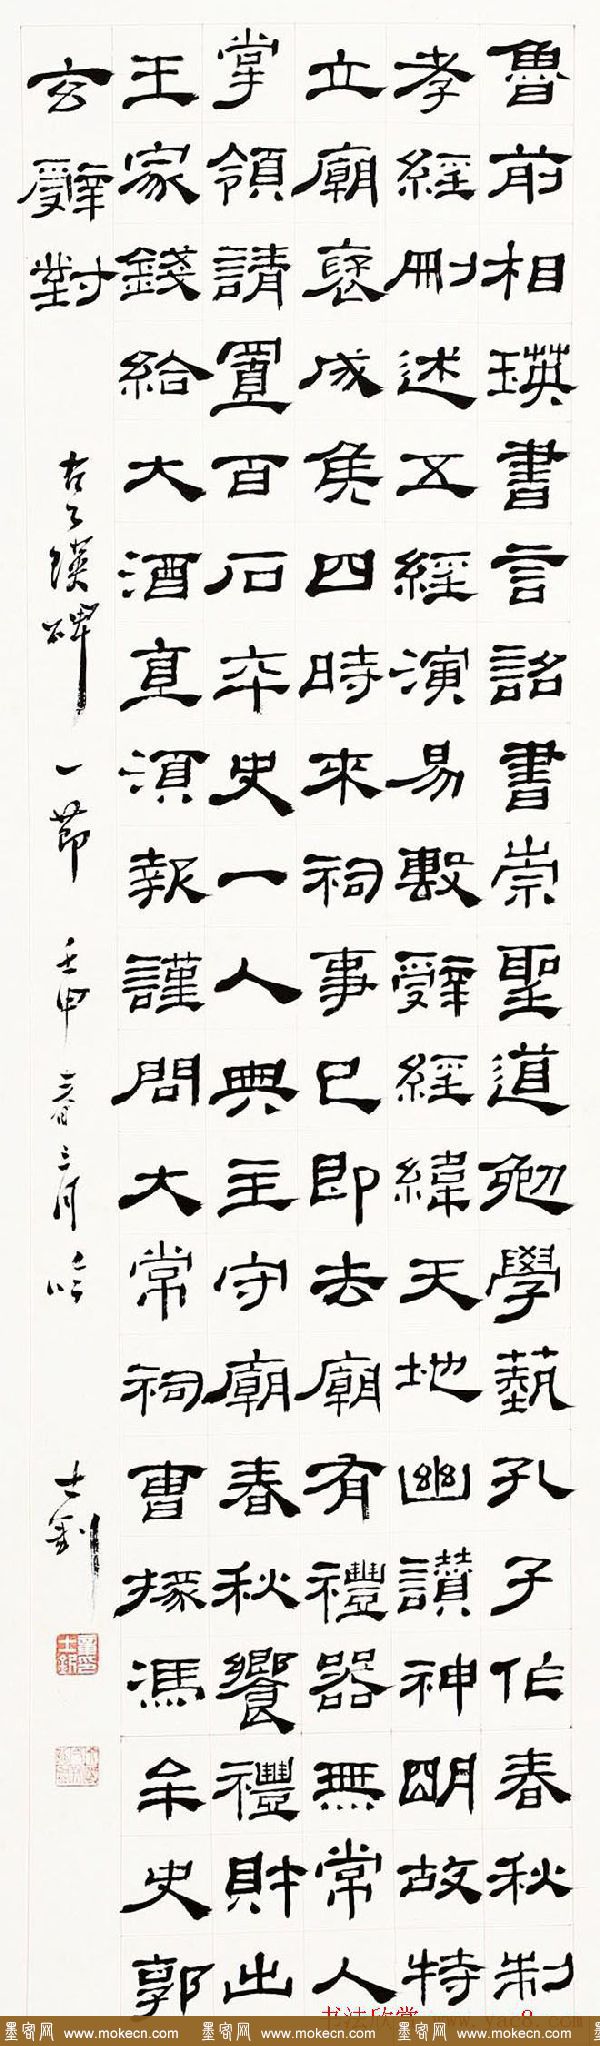 魯前相瑛書言詔書崇聖道勉學藝孔子作春秋制
孝經刪述五經演易繫辭經緯天地幽讚神明故特
立廟褒成侯四時來祠事已即去廟有禮器無常人
掌領請置百石卒史一人典主守廟春秋饗禮財出
王家錢給大酒直須報謹問大常祠曹掾馮牟史郭
玄辭對
右乙瑛碑 一節 壬申 春三月
书法欣赏 www.yac8.com
墨客网 www.mokecn.com 墨客网 www.mokecn.com 墨客网 www.mokecn.com